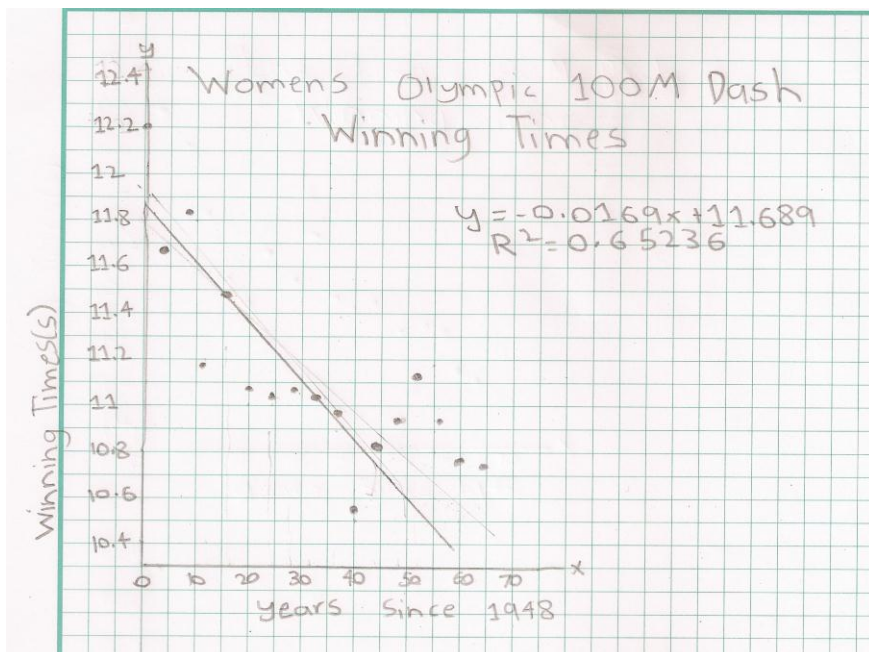 y
Womens Olympic 100M Dash
Winning Times
y = -0.0169x + 11.689
R² = 0.65236
12.4
12.2
12
11.8
11.6
11.4
11.2
11
10.8
10.6
10.4
Winning Times(s)
0 10 20 30 40 50 60 70 x
years since 1948